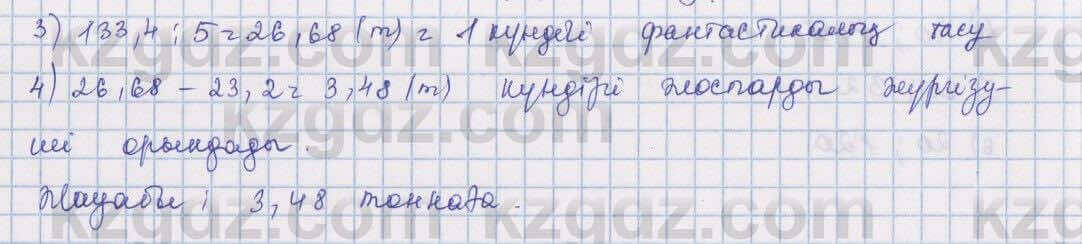 3) 133,4 : 5 = 26,68 (т) = 1 күндегі фантастикалық тасу
4) 26,68 - 23,2 = 3,48 (т) күндізгі жоспарды жүргізу-
ші орындады.
Жауабы: 3,48 тоннаға.
kzgdz.com